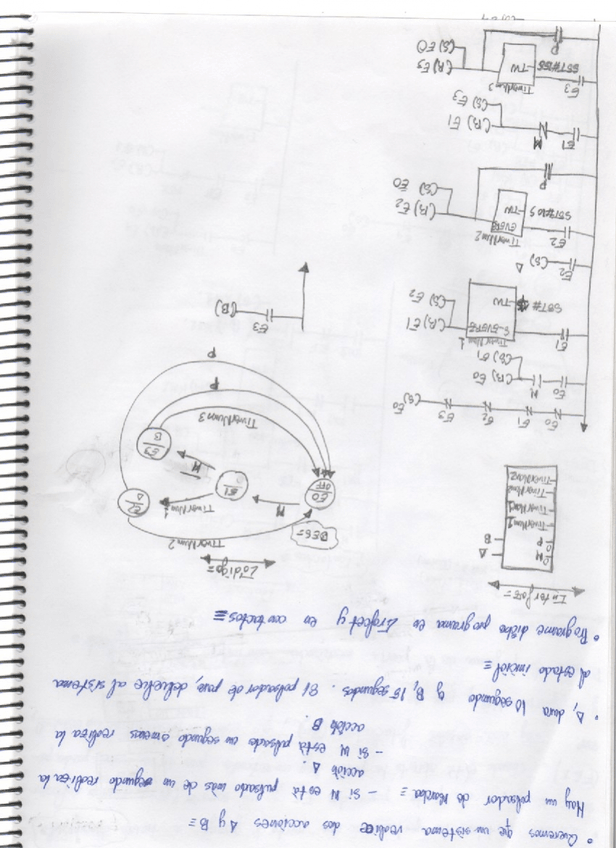 • Queremos que un sistema realice dos acciones A y B =
Hay un pulsador de Marcha = - Si M está pulsado más de un segundo realiza la
acción A.
- Si M está pulsado un segundo o menos realiza la
acción B.
• A, dura 10 segundo y B, 15 segundos. El pulsador de paro, devuelve al sistema
al estado inicial =
• Programe dicho programa en Grafcet y en contactos =
Interfaces =
M
P
A
B
TimerNum1
TimerNum2
Código =
DES =
E0
OFF
M
E1
TimerNum1
E2
A
M
E3
B
TimerNum2
TimerNum3
P
P
E0 E1 E2 E3 (S) E0
E0 M (R) E0
(S) E1
E1 TimerNum1 (R) E1
S-EVERZ
S5T# TW (S) E2
E2 (S) A
E2 TimerNum2 (R) E2
S5T#10S TW (S) E0
P
E1 M (R) E1
(S) E3
E3 TimerNum3 (R) E3
TW (S) E0
P
E3 (B)